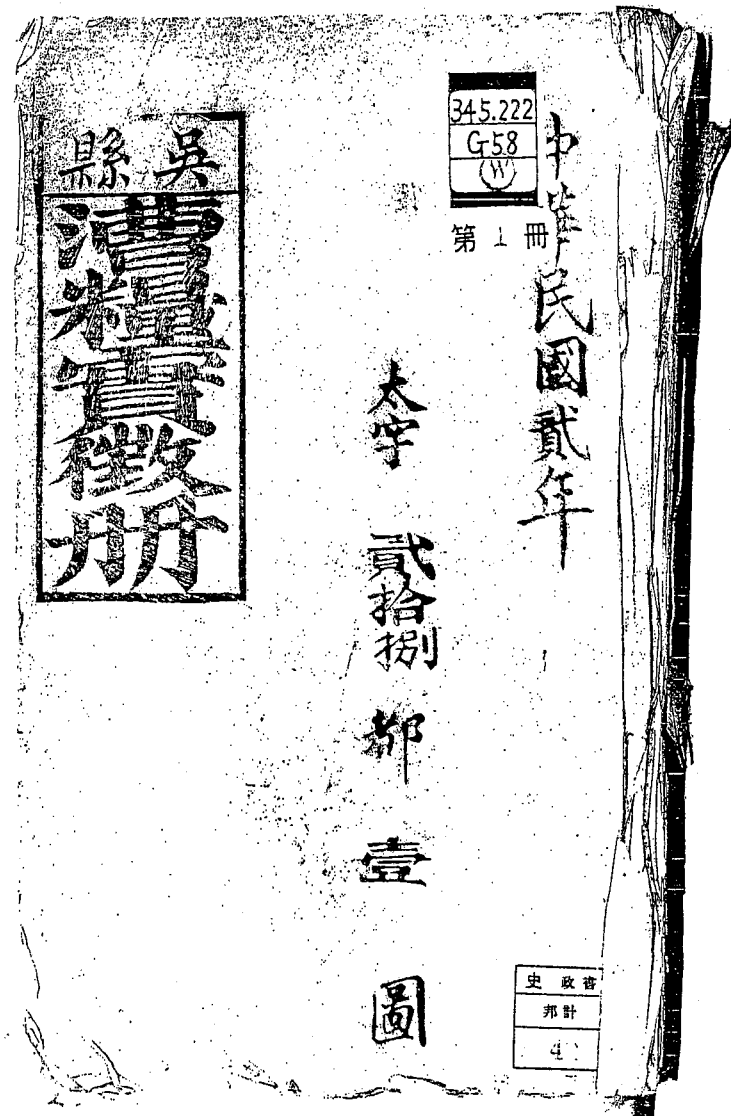 中華民國貳年
345.222
G58
W
第1冊
太字 貳拾捌 都 壹 圖
吳縣
漕糧實徵册
史 政
邦 計
4